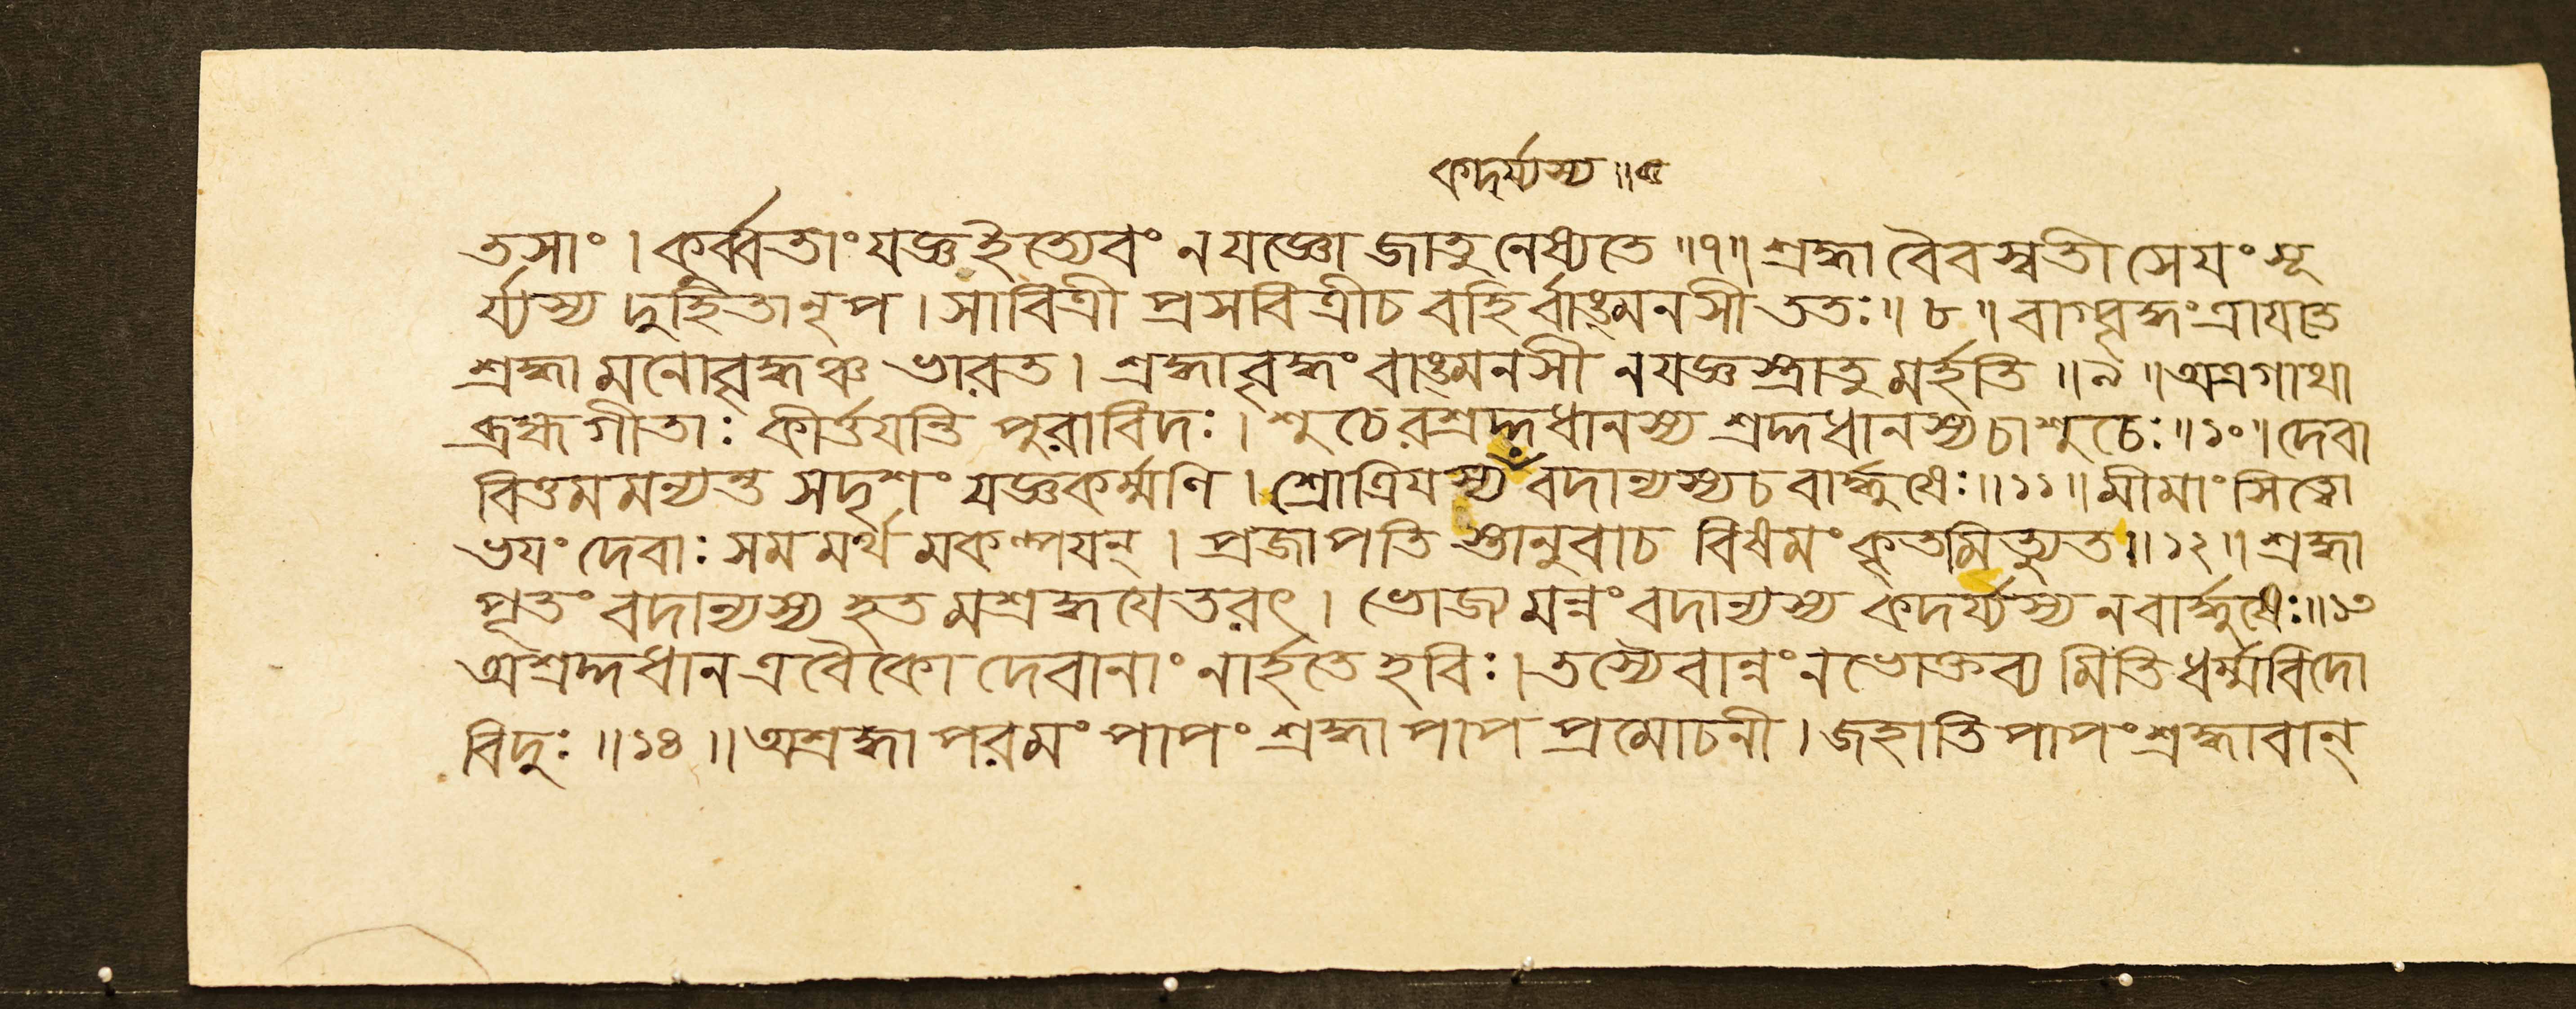 কদর্য্যস্য ॥৫
তসাং । কুর্ব্বতাং যজ্ঞইত্যেবং নযজ্ঞো জাতু নেষ্যতে ॥৭॥ শ্রদ্ধা বৈবস্বতী সেযং সূ
র্য্যস্য দুহিতানৃপ । সাবিত্রী প্রসবিত্রীচ বহির্বাঙ্মনসী ততঃ ॥ ৮ ॥ বাগ্বৃদ্ধং ত্রাযতে
শ্রদ্ধা মনোবৃদ্ধঞ্চ ভারত । শ্রদ্ধাবৃদ্ধং বাঙ্মনসী নযজ্ঞস্ত্রাতু মর্হতি ॥ ৯ ॥ অত্রগাথা
ব্রহ্মগীতাঃ কীর্ত্তযন্তি পুরাবিদঃ । শুচেরশ্রদ্দধানস্য শ্রদ্দধানস্যচাশুচেঃ ॥১০॥ দেবা
বিত্তমমন্যন্ত সদৃশং যজ্ঞকর্ম্মণি । শ্রোত্রিযস্য বদান্যস্যচ বার্দ্ধুষেঃ ॥১১॥ মীমাংসিত্বো
ভযং দেবাঃ সমমর্থ মকল্পযন্ । প্রজাপতি স্তানুবাচ বিষমং কৃতমিত্যুত ॥১২॥ শ্রদ্ধা
পূতং বদান্যস্য হত মশ্রদ্ধযেতরৎ । ভোজ্য মন্নং বদান্যস্য কদর্য্যস্য নবার্দ্ধুষেঃ ॥১৩
অশ্রদ্দধান এবৈকো দেবানাং নার্হতে হবিঃ । তস্যৈবান্নং নভোক্তব্য মিতি ধর্ম্মবিদো
বিদুঃ ॥১৪॥ অশ্রদ্ধা পরমং পাপং শ্রদ্ধা পাপ প্রমোচনী । জহাতি পাপং শ্রদ্ধাবান্